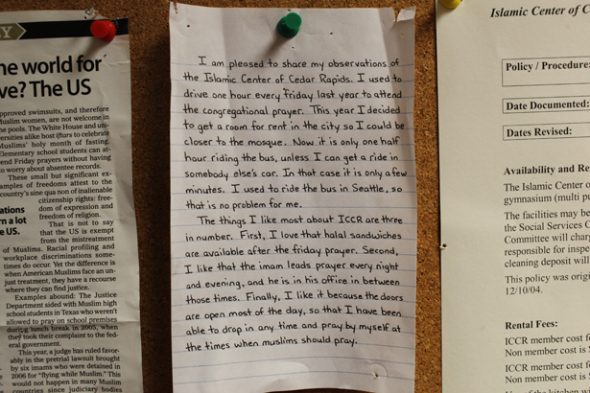 he world for
ve? The US
pproved swimsuits, and therefore
Muslim women, are not welcome in
he pools. The White House and uni-
ersities alike host iftars to celebrate
Muslims' holy month of fasting.
Elementary school students can at-
tend Friday prayers without having
to worry about absentee records.
These small but significant ex-
amples of freedoms attest to the
country's sine qua non of inalienable
citizenship rights: free-
dom of expression and
freedom of religion.
That is not to say
that the US is exempt
from the mistreatment
of Muslims. Racial profiling and
workplace discriminations some-
times do occur. Yet the difference is
when American Muslims face an un-
just treatment, they have a recourse
where they can find justice.
Examples abound: The Justice
Department sided with Muslim high
school students in Texas who weren't
allowed to pray on school premises
during lunch break in 2005, when
they took their complaint to the fed-
eral government.
This year, a judge has ruled favor-
ably in the pretrial lawsuit brought
by six imams who were detained in
2006 for "flying while Muslim." This
would not happen in many Muslim
countries since judiciary bodies
ations
rn a lot
e US.
I am pleased to share my observations of
the Islamic Center of Cedar Rapids. I used to
drive one hour every Friday last year to attend
the congregational prayer. This year I decided
to get a room for rent in the city so I could be
closer to the mosque. Now it is only one half
hour riding the bus, unless I can get a ride in
somebody else's car. In that case it is only a few
minutes. I used to ride the bus in Seattle, so
that is no problem for me.
The things I like most about ICCR are three
in number. First, I love that halal sandwiches
are available after the friday prayer. Second,
I like that the imam leads prayer every night
and evening, and he is in his office in between
those times. Finally, I like it because the doors
are open most of the day, so that I have been
able to drop in any time and pray by myself at
the times when muslims should pray.
Islamic Center of C
Policy / Procedure:
Date Documented:
Dates Revised:
Availability and Re
The Islamic Center o
gymnasium (multi pu
The facilities may be
the Social Services C
Committee will charg
responsible for inspe
cleaning deposit will
This policy was origi
12/10/04.
Rental Fees:
ICCR member cost f
Non member cost is $
ICCR member cost fo
Non member cost is $